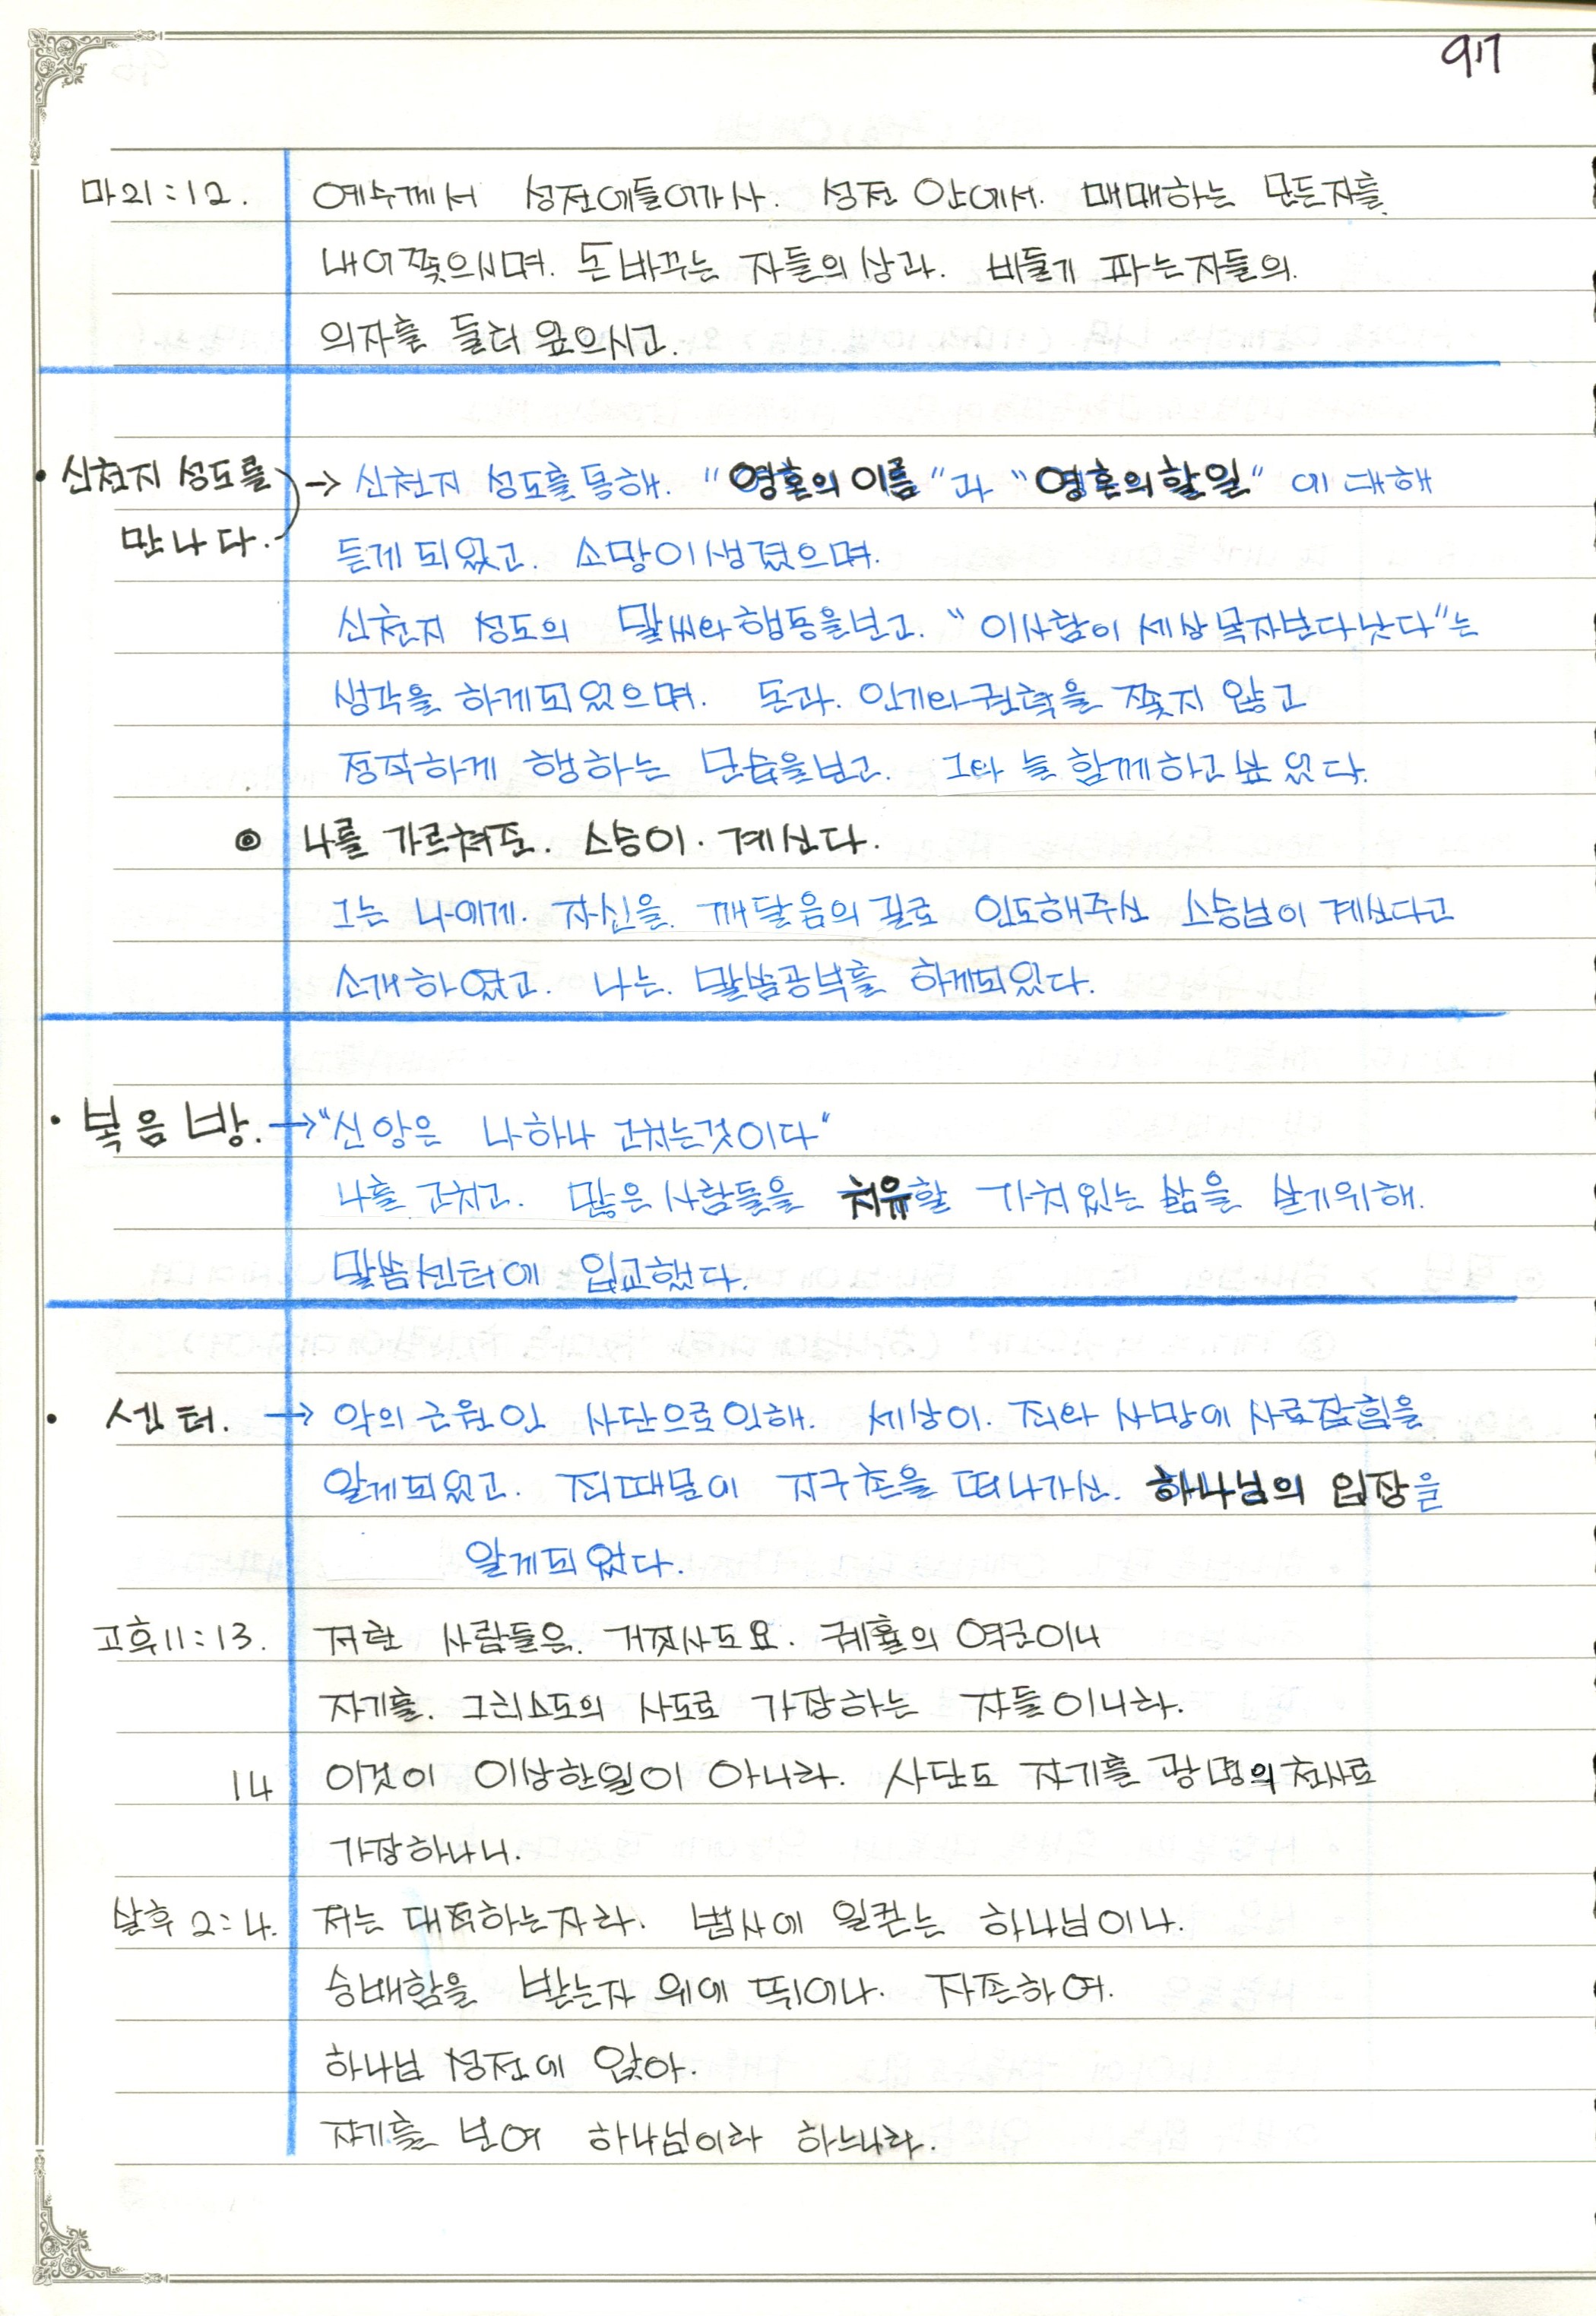 917
마21:12. 예수께서 성전에들어가사. 성전 안에서. 매매하는 모든자를
내어쫓으시며. 돈바꾸는 자들의상과. 비둘기 파는자들의.
의자를 둘러 엎으시고.
• 신천지 성도를 → 신천지 성도를통해. "영혼의 이름"과 "영혼의할일" 에 대해
만나다. 듣게 되었고. 소망이생겼으며.
신천지 성도의 말씨와행동을보고. "이사람이 세상목자보다낫다"는
생각을 하게되었으며. 돈과. 인기와권력을 쫓지 않고
정직하게 행하는 모습을보고. 그와 늘 함께하고싶었다.
◎ 나를 가르쳐준. 스승이. 계신다.
그는 나에게. 자신을. 깨달음의 길로 인도해주신 스승님이 계신다고
소개하였고. 나는. 말씀공부를 하게되었다.
• 복음방. → "신앙은 나하나 고치는것이다"
나를 고치고. 많은사람들을 치유할 가치있는 삶을 살기위해.
말씀센터에 입교했다.
• 센터. → 악의근원인 사단으로인해. 세상이. 죄와 사망에 사로잡힘을
알게되었고. 죄때문에 지구촌을 떠나가신. 하나님의 입장을
알게되었다.
고후11:13. 저런 사람들은. 거짓사도요. 궤휼의 역군이니
자기를. 그리스도의 사도로 가장하는 자들이니라.
14 이것이 이상한일이 아니라. 사단도 자기를 광명의천사로
가장하나니.
살후2:4. 저는 대적하는자라. 범사에 일컫는 하나님이나.
숭배함을 받는자 위에 뛰어나. 자존하여.
하나님 성전에 앉아.
자기를 보여 하나님이라 하느니라.